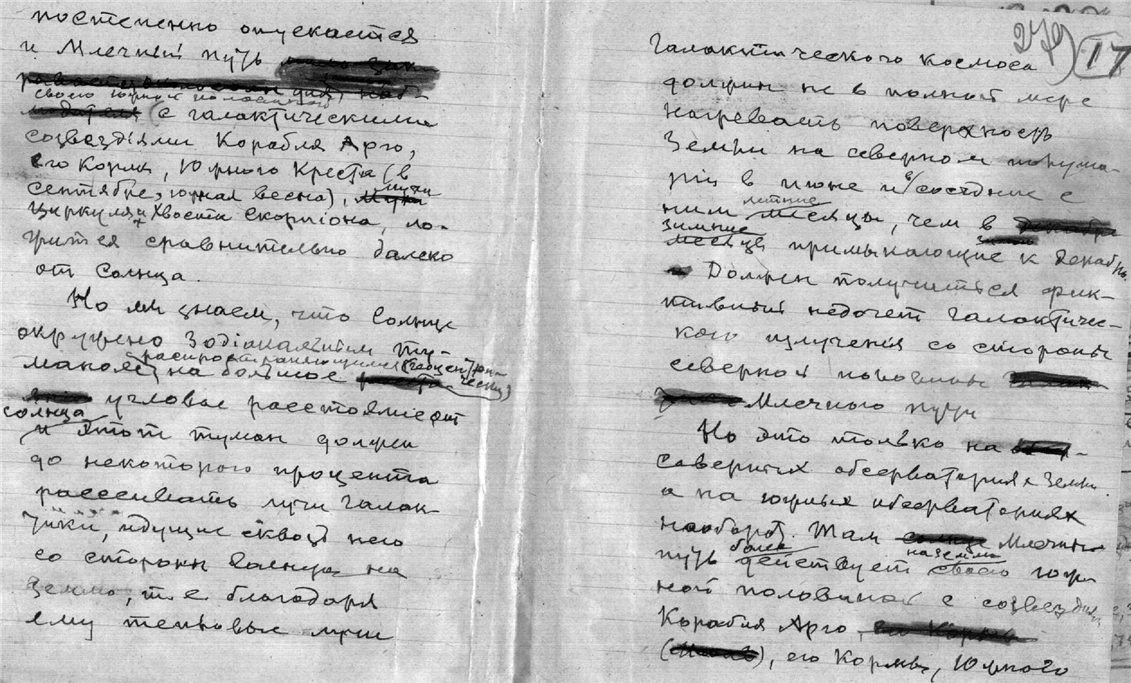 постепенно опускается
и Млечный путь
своею южной половиной
с галактическими
созвездиями Корабля Арго,
его Кормы, Южного Креста (в
сентябре, южная весна),
Циркуля и Хвоста Скорпиона, ло-
жится сравнительно далеко
от Солнца.
Но мы знаем, что Солнце
окружено Зодіакальным ту-
распространяющимся
маном на большое
угловые расстояние от
солнца
и этот туман должен
до некоторого процента
рассеивать лучи галак-
тики, идущие сквозь него
со стороны Солнца на
Землю, т. е. благодаря
ему тепловые лучи
279) 17
галактического космоса
должны не в полной мере
нагревать поверхность
Земли на северном полуша-
ріи в июне и в соседние с
летние
ним месяцы, чем в
зимние
месяцы примыкающие к декабрю.
Должен получиться фик-
тивный недочет галактичес-
кого излученія со стороны
северной половины
Млечного пути
Но это только на
северных обсерваториях Земли
а на южных обсерваториях
наоборот. Там Млечный
более на землю
путь действует своею юж-
ной половиной с созвездиями
Корабля Арго,
его Кормы, Южного